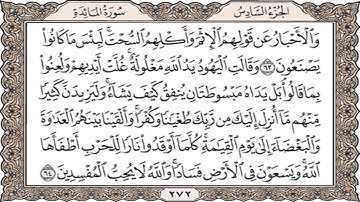 الجزء السادس
سورة المائدة
وَالْأَحْبَارُ عَن قَوْلِهِمُ الْإِثْمَ وَأَكْلِهِمُ السُّحْتَ ۚ لَبِئْسَ مَا كَانُوا
يَصْنَعُونَ ﴿٦٣﴾ وَقَالَتِ الْيَهُودُ يَدُ اللَّهِ مَغْلُولَةٌ ۚ غُلَّتْ أَيْدِيهِمْ وَلُعِنُوا
بِمَا قَالُوا ۘ بَلْ يَدَاهُ مَبْسُوطَتَانِ يُنفِقُ كَيْفَ يَشَاءُ ۚ وَلَيَزِيدَنَّ كَثِيرًا
مِّنْهُم مَّا أُنزِلَ إِلَيْكَ مِن رَّبِّكَ طُغْيَانًا وَكُفْرًا ۚ وَأَلْقَيْنَا بَيْنَهُمُ الْعَدَاوَةَ
وَالْبَغْضَاءَ إِلَىٰ يَوْمِ الْقِيَامَةِ ۚ كُلَّمَا أَوْقَدُوا نَارًا لِّلْحَرْبِ أَطْفَأَهَا
اللَّهُ ۚ وَيَسْعَوْنَ فِي الْأَرْضِ فَسَادًا ۚ وَاللَّهُ لَا يُحِبُّ الْمُفْسِدِينَ ﴿٦٤﴾
٢٧٢